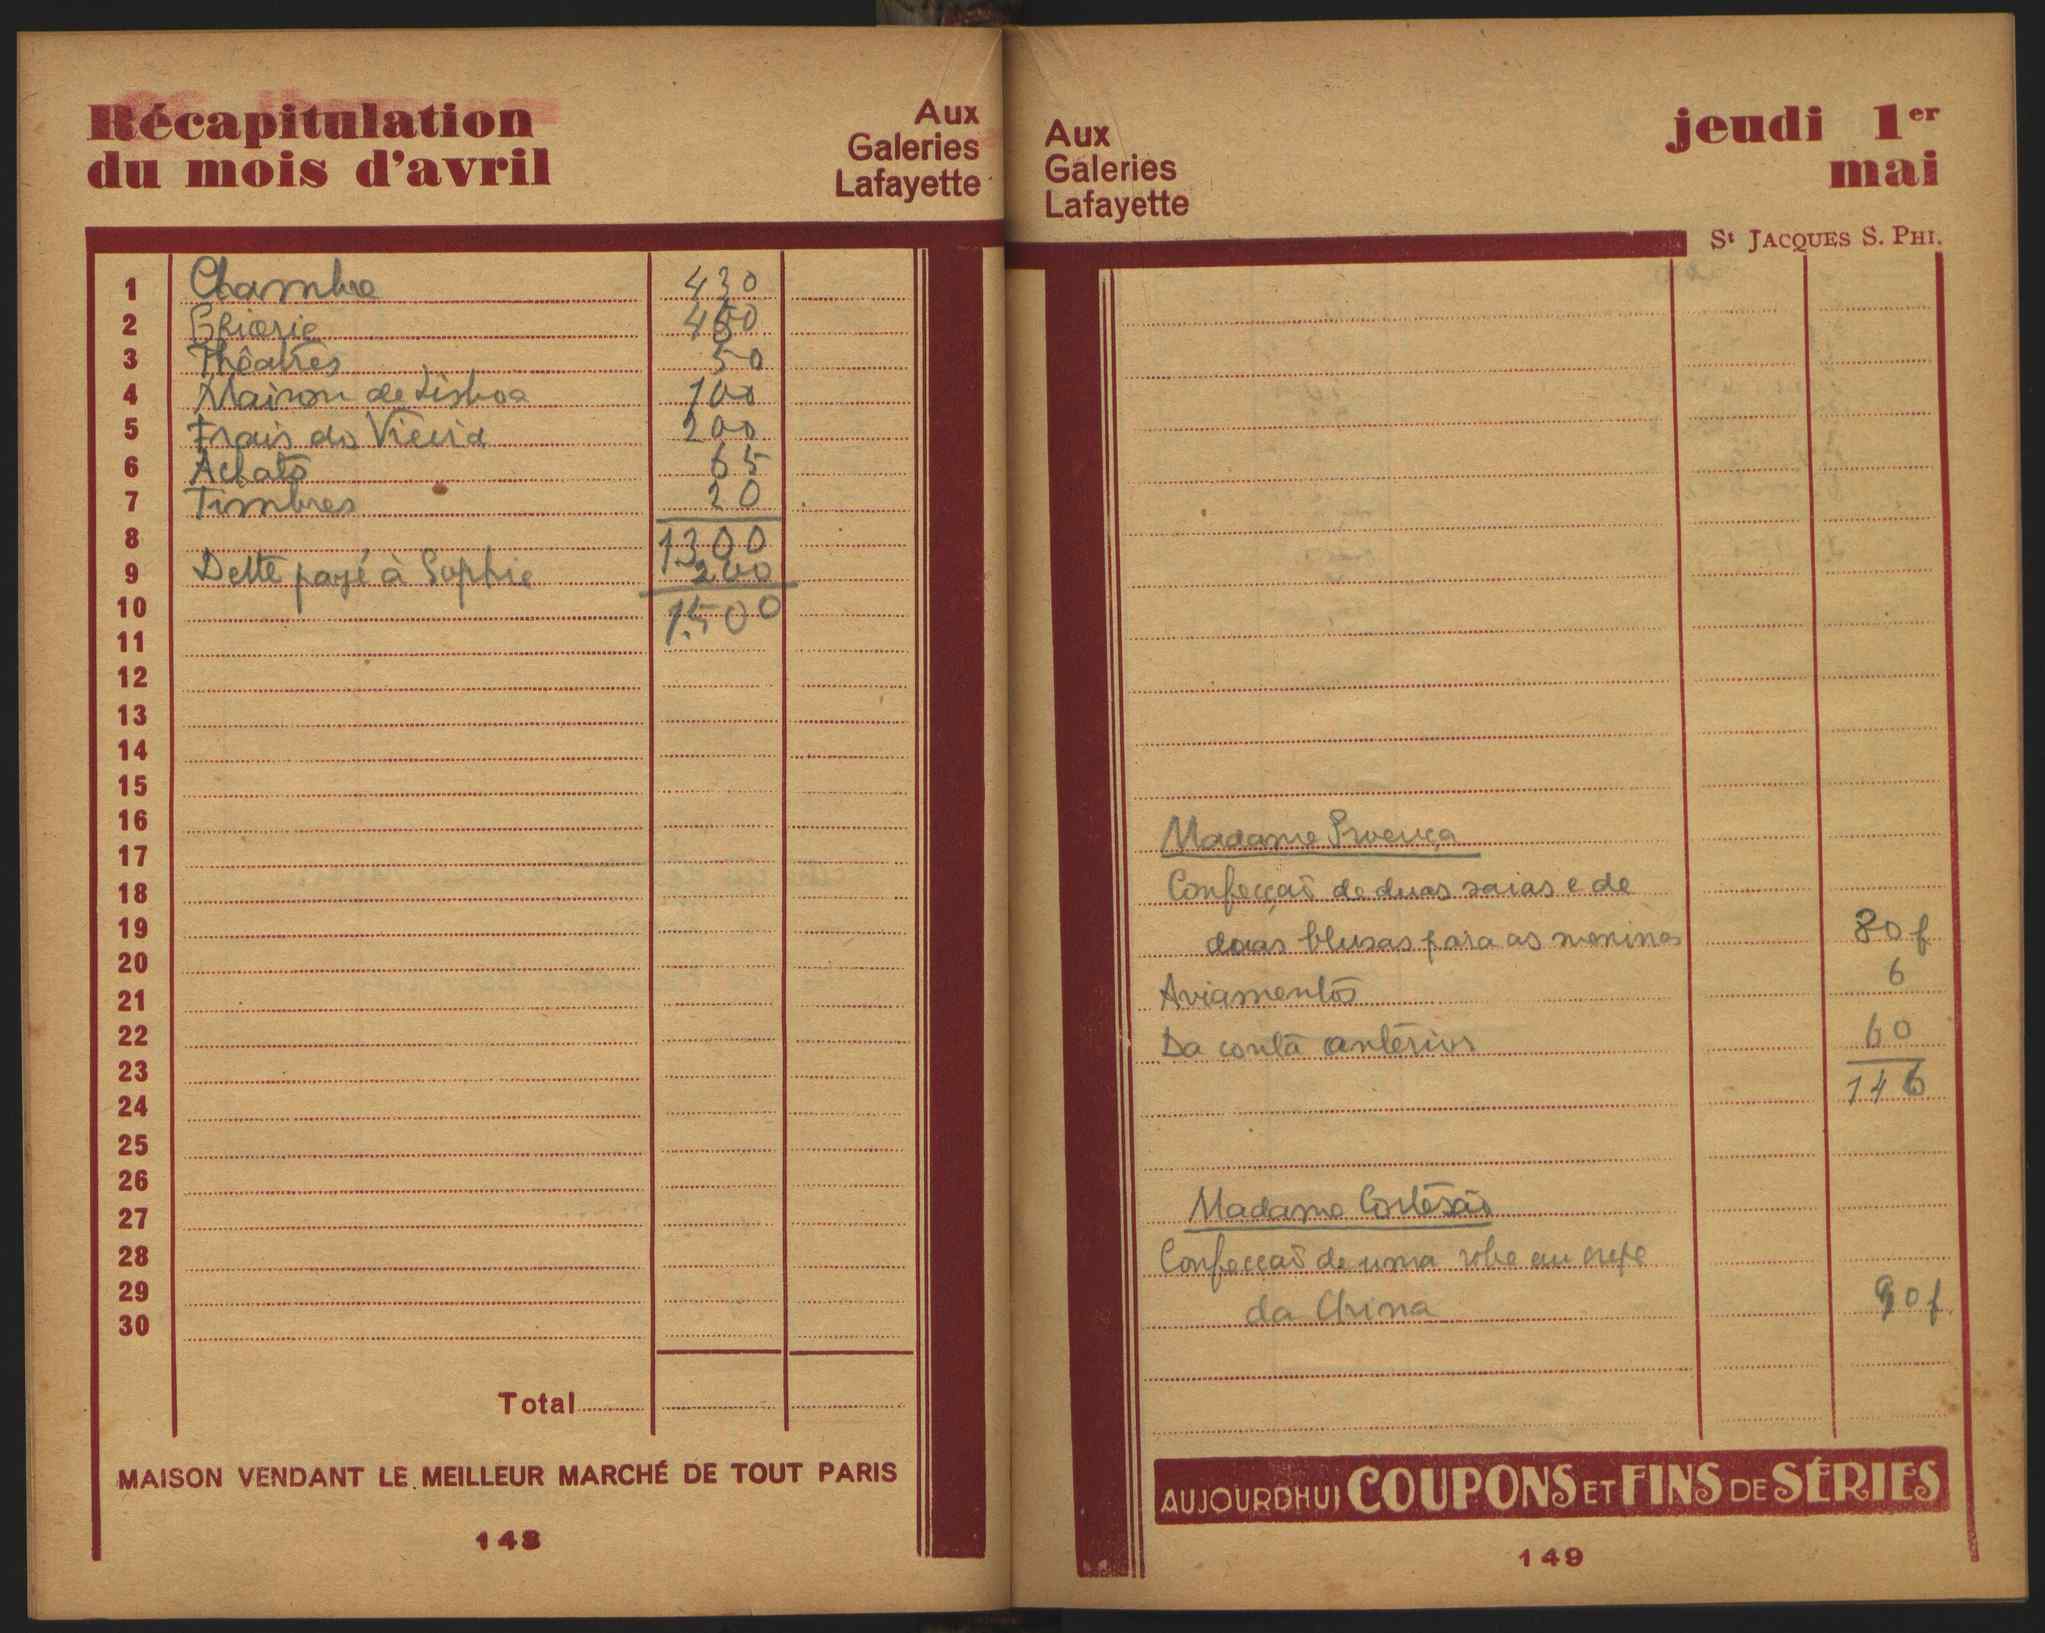 Récapitulation
du mois d'avril
Aux
Galeries
Lafayette
1 Chambre 430
2 Epicerie
3 Théatres 50
4 Maison de Lisboa 100
5 Frais do Vieira 200
6 Achats 65
7 Timbres 20
8 1300
9 Dette payé à Sophie 200
10 1.500
11
12
13
14
15
16
17
18
19
20
21
22
23
24
25
26
27
28
29
30
Total
MAISON VENDANT LE MEILLEUR MARCHÉ DE TOUT PARIS
148
Aux
Galeries
Lafayette
jeudi 1er
mai
St JACQUES S. PHI.
Madame Proença
Confecção de duas saias e de
duas blusas para as meninas 80 f
Aviamentos 6
Da conta anterior 60
146
Madame Cortesão
Confecção de uma robe au crepe
da China 90 f
AUJOURDHUI COUPONS ET FINS DE SÉRIES
149